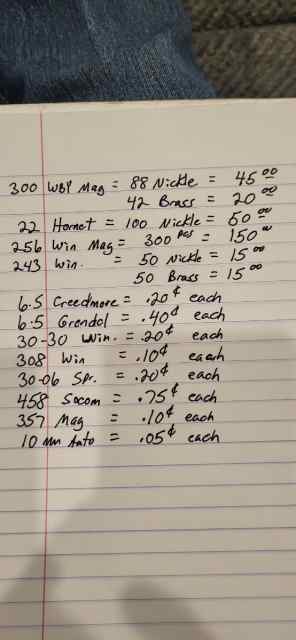 300 WBY Mag = 88 Nickle = 45 00
42 Brass = 20 00
22 Hornet = 100 Nickle = 50 00
256 Win Mag = 300 pcs = 150 00
243 Win. = 50 Nickle = 15 00
50 Brass = 15 00
6.5 Creedmore = .20¢ each
6.5 Grendol = .40¢ each
30-30 Win. = .20¢ each
308 Win = .10¢ each
30-06 Spr. = .20¢ each
458 Socom = .75¢ each
357 Mag = .10¢ each
10 mm Auto = .05¢ each